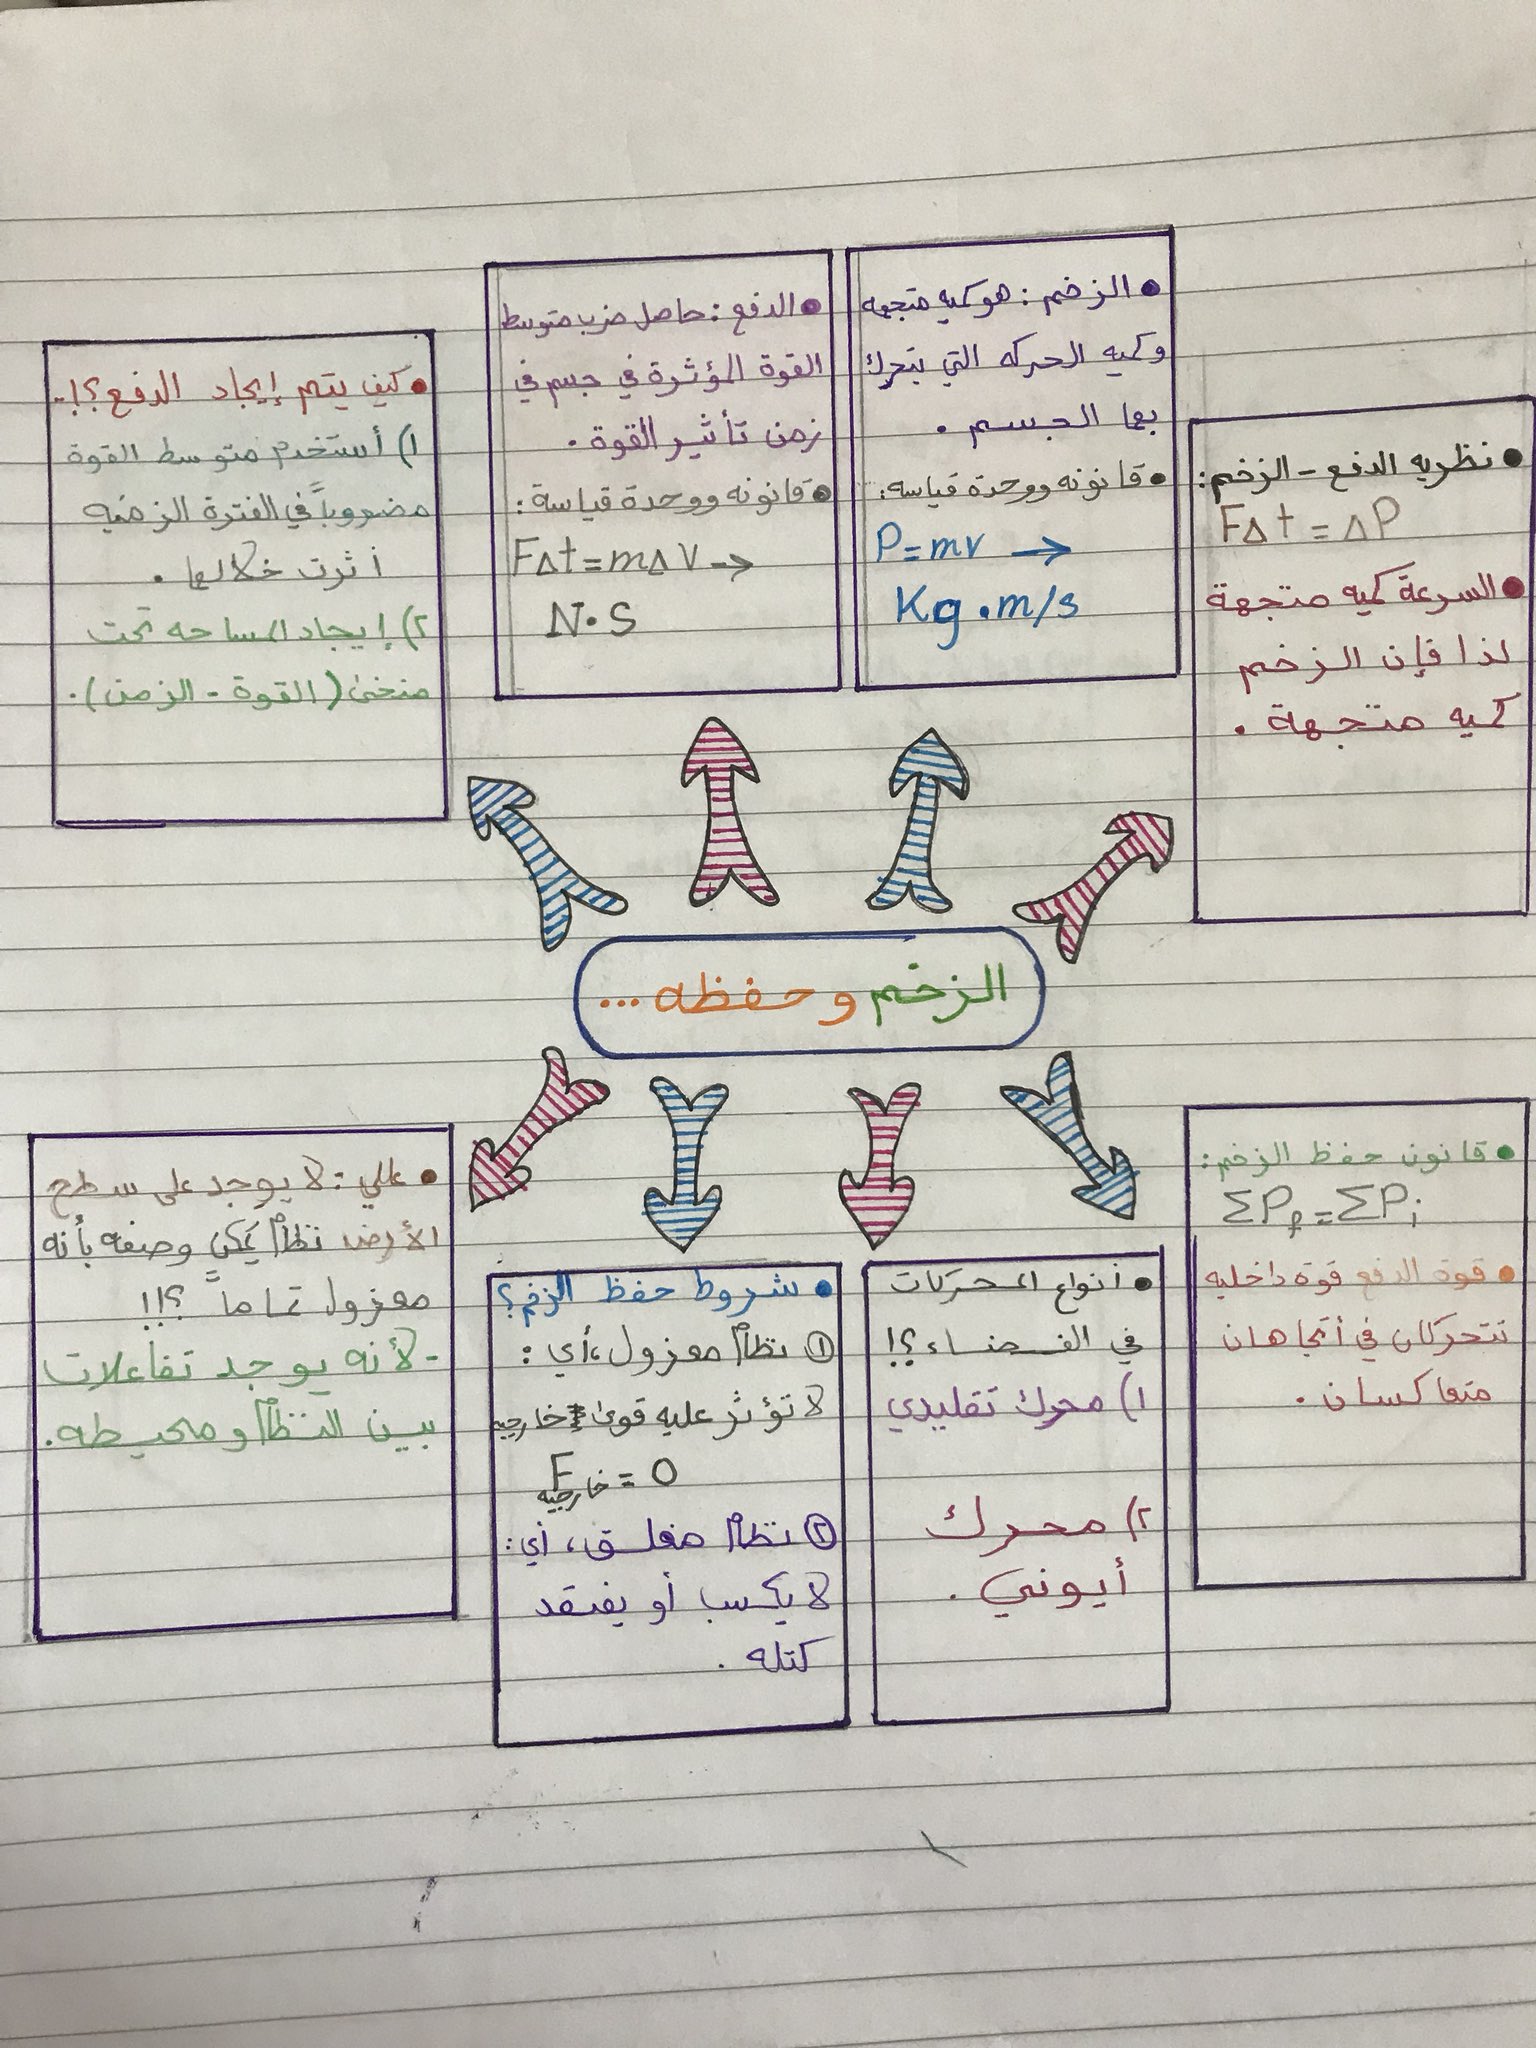 • الزخم : هو كميه متجهه
وكميه الحركه التي يتحرك
بها الجسم .
• قانونه ووحدة قياسه :
P = mv →
Kg . m/s
• الدفع : حاصل ضرب متوسط
القوة المؤثرة في جسم في
زمن تأثير القوة .
• قانونه ووحدة قياسة :
F∆t = m∆V →
N . S
• كيف يتم إيجاد الدفع ؟!..
١) أستخدم متوسط القوة
مضروباً في الفترة الزمنيه
أثرت خلالها .
٢) إيجاد المساحه تحت
منحنى ( القوة - الزمن ) .
• نظريه الدفع - الزخم :
F∆t = ∆P
• السرعة كميه متجهة
لذا فإن الزخم
كميه متجهة .
الزخم و حفظه ...
• قانون حفظ الزخم :
ΣPf = ΣPi
• قوة الدفع قوة داخليه
تتحركان في أتجاهان
متعاكسان .
• أنواع المحركات
في الفضاء ؟!
١) محرك تقليدي
٢) محرك
أيوني .
• شروط حفظ الزخم ؟
① نظام معزول ، أي :
لا تؤثر عليه قوى خارجيه
F خارجيه = 0
② نظام مغلق ، أي :
لا يكسب أو يفتقد
كتله .
• عللي : لا يوجد على سطح
الأرض نظام يمكن وصفه بأنه
معزول تماماً ؟!!
- لأنه يوجد تفاعلات
بين النظام ومحيطه .